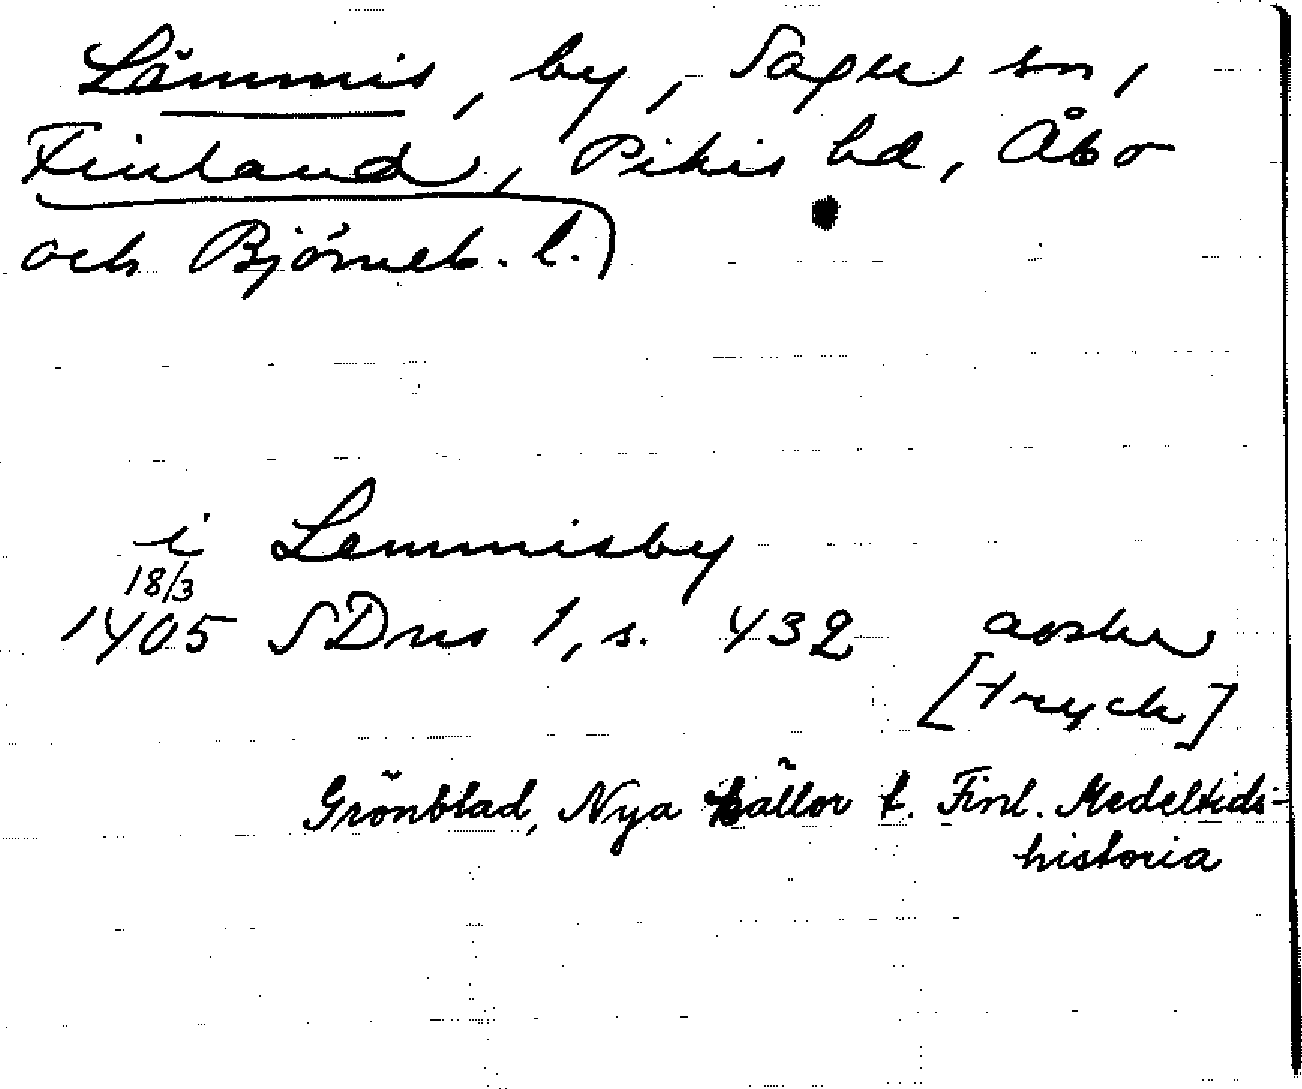 Lämmis, by, Sagu sn,
Finland, Pikis hd, Åbo
och Björneb. l.)
i Lemmisby
18/3
1405 SDns 1, s. 432 avskr
[tryck]
Grönblad, Nya källor t. Finl. Medeltids-
historia